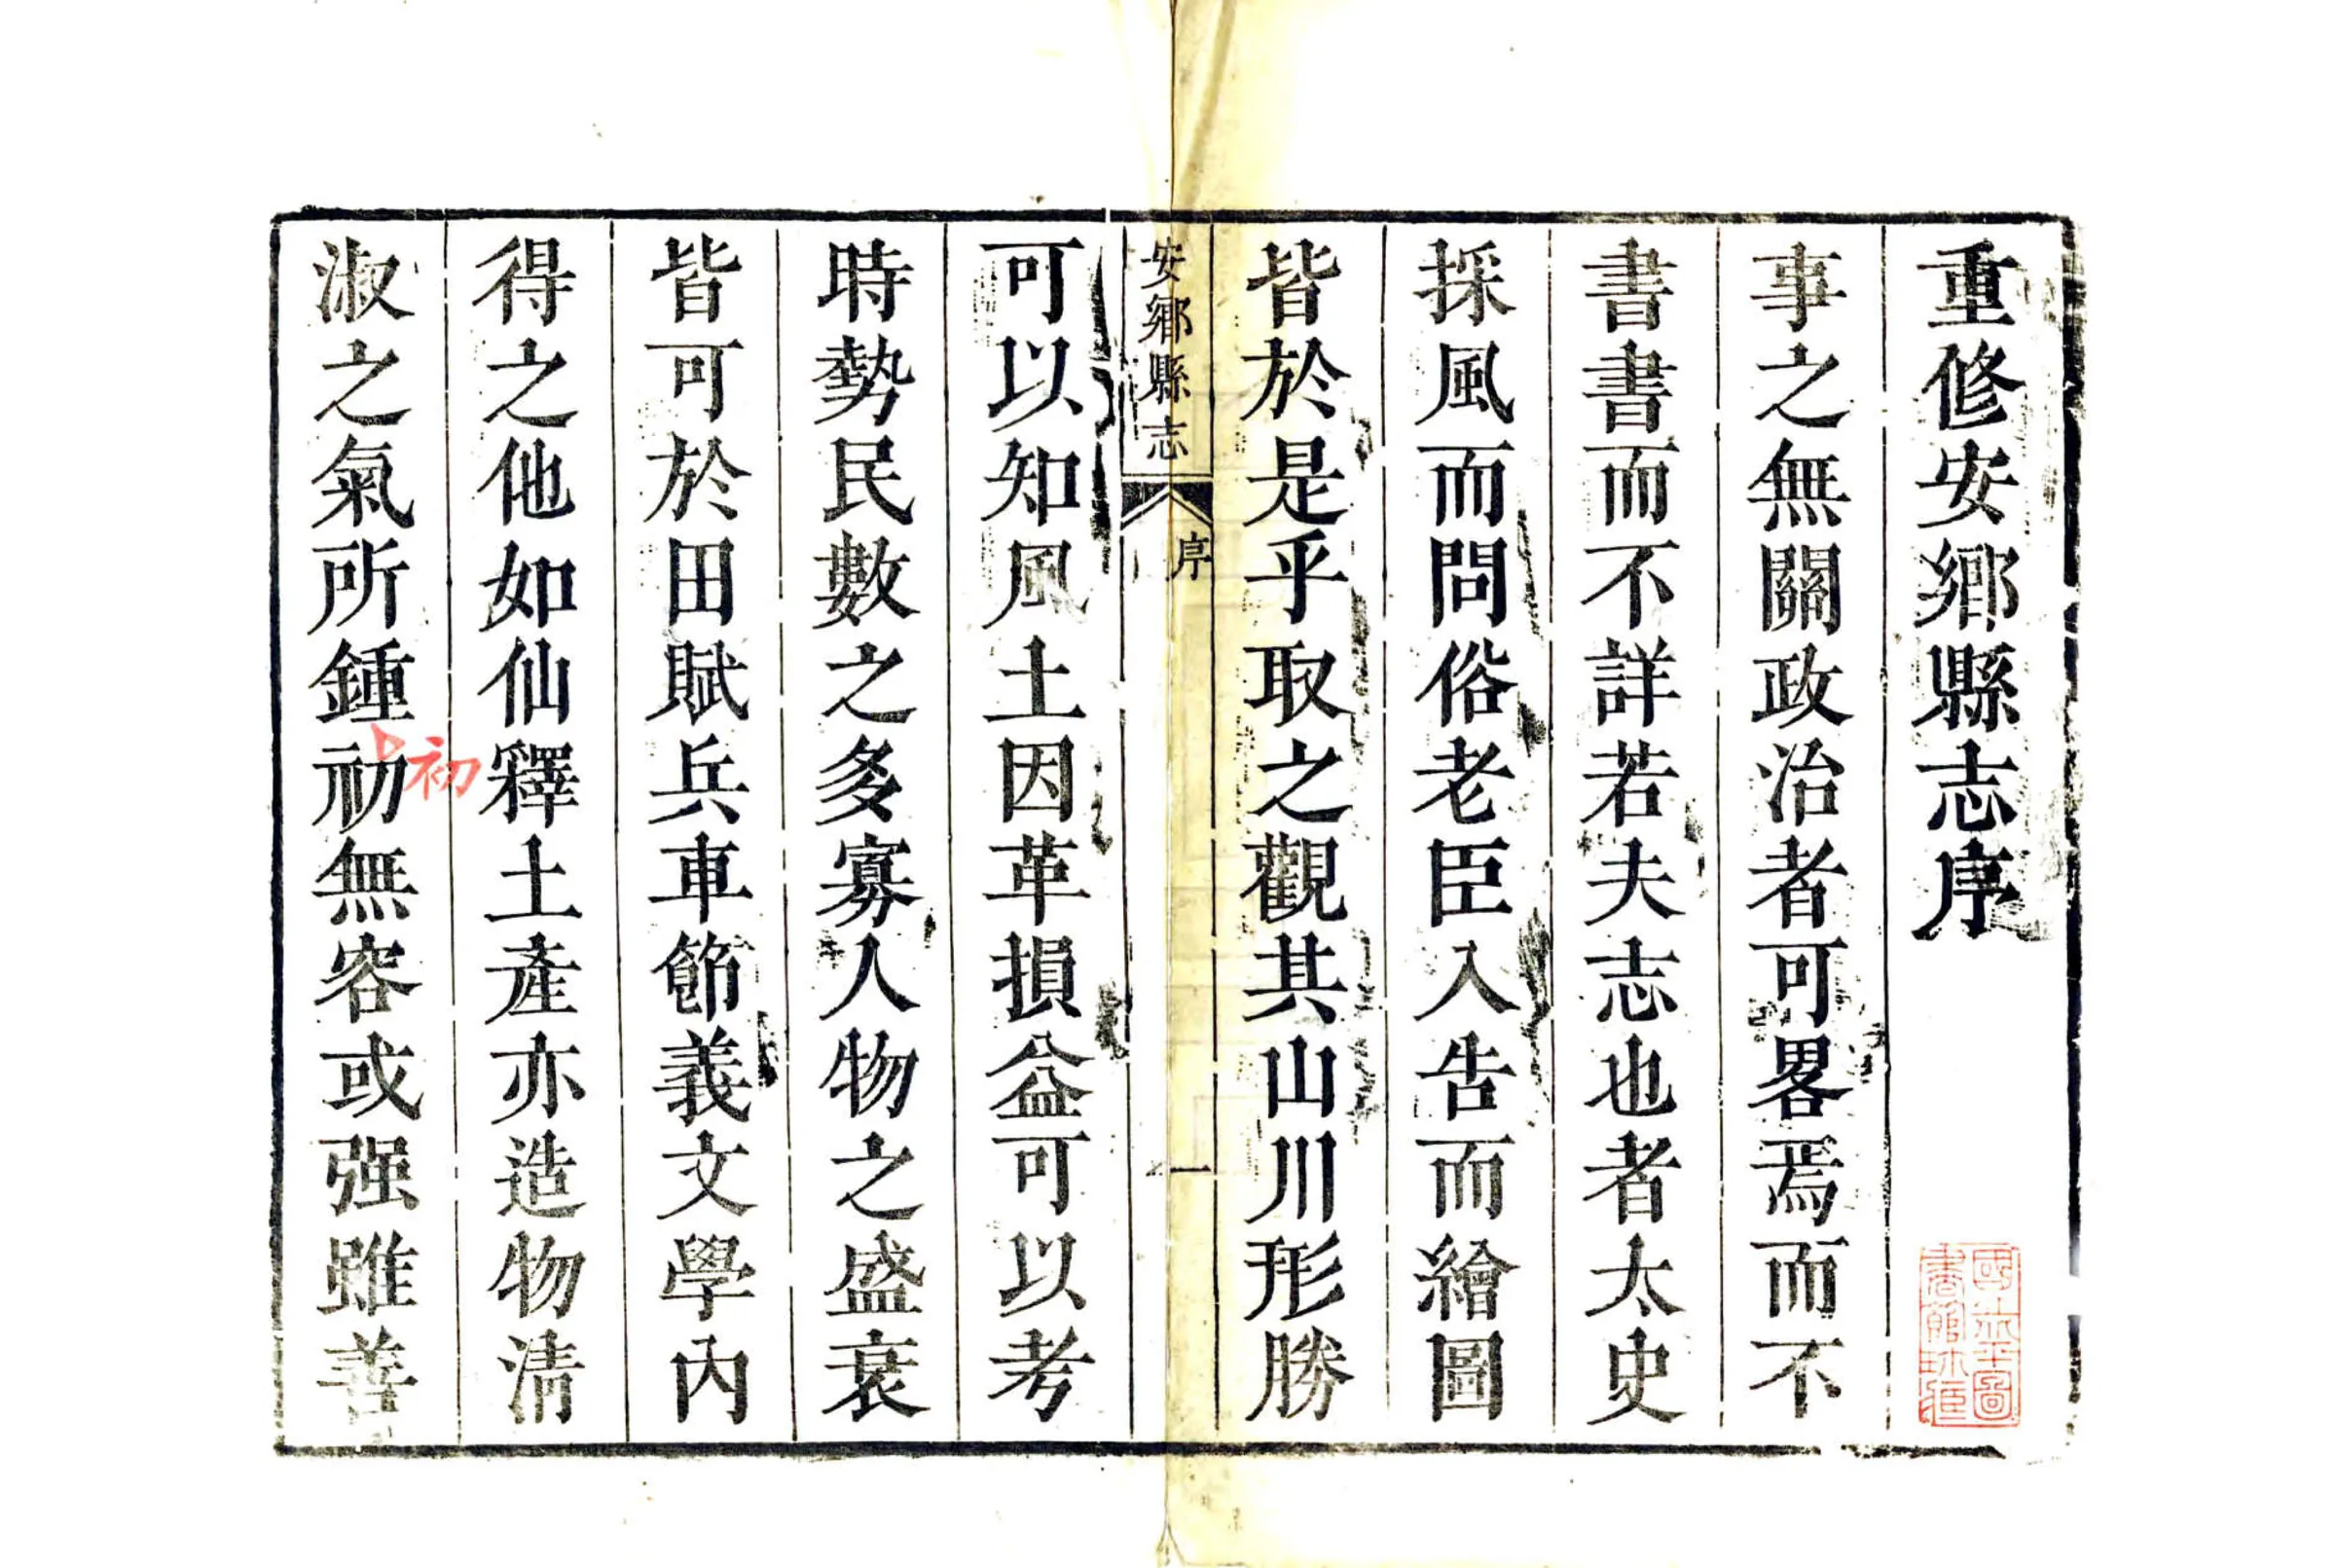 重修安鄉縣志序
事之無關政治者可畧焉而不
書書而不詳若夫志也者太史
採風而問俗老臣入告而繪圖
皆於是乎取之觀其山川形勝
安鄉縣志
序
一
可以知風土因革損益可以考
時勢民數之多寡人物之盛衰
皆可於田賦兵車節義文學內
得之他如仙釋土產亦造物清
淑之氣所鍾初無容或强雖善
初
國立北平圖
書館珍藏